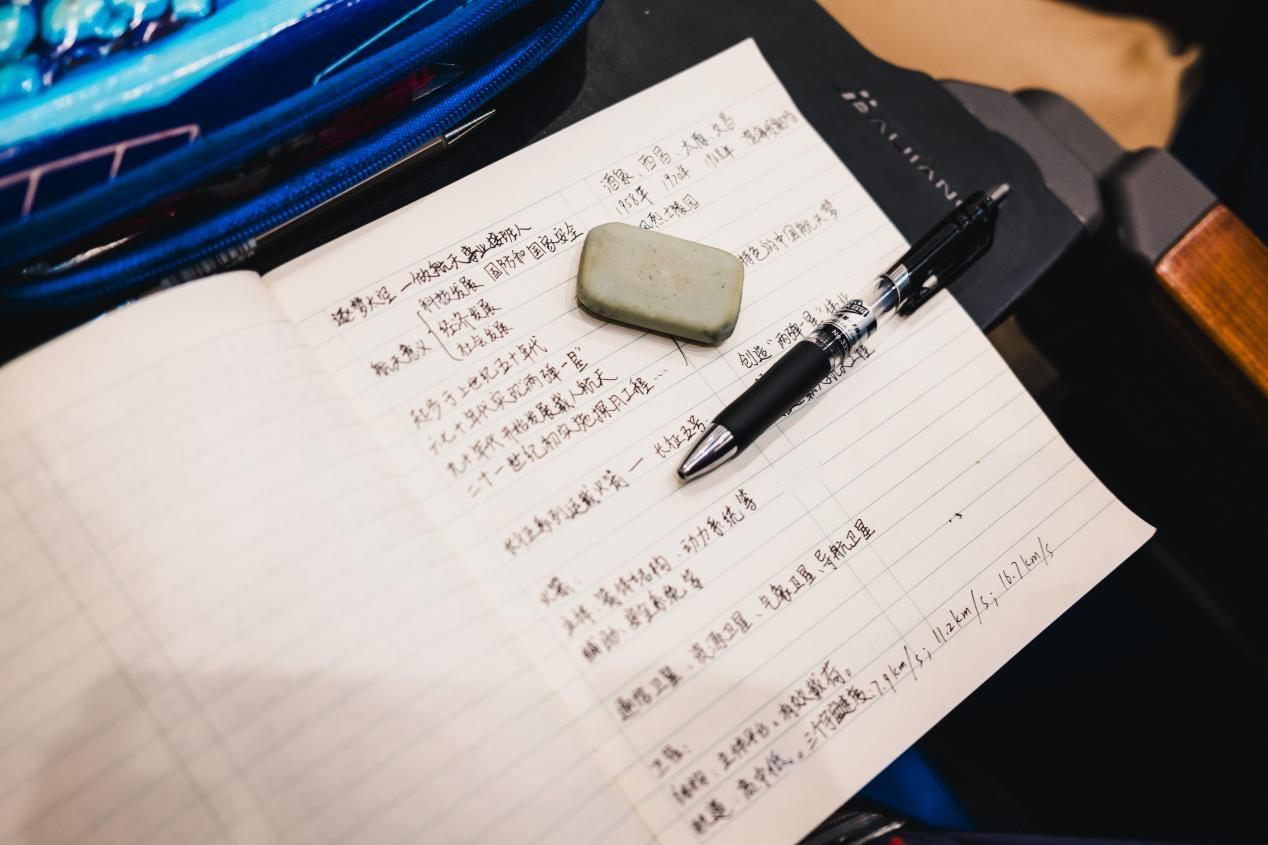 酒泉、西昌、太原、文昌
1958年 1970年 1968年
逐梦太空 — 做航天事业接班人
科技发展 国防和国家安全
烈士陵园
航天意义 经济发展
社会发展
特色的中国航天梦
起步于上世纪五十年代
六七十年代实现"两弹一星"
创造"两弹一星"伟业
九十年代开始发展载人航天
工程
二十一世纪初实施探月工程…
长征系列运载火箭 — 长征五号
火箭:
主体:箭体结构、动力系统等
辅助:安全系统等
通信卫星、资源卫星、气象卫星、导航卫星
卫星:
结构:主体平台、有效载荷。
轨道:高中低。三个宇宙速度:7.9km/s;11.2km/s;16.7km/s